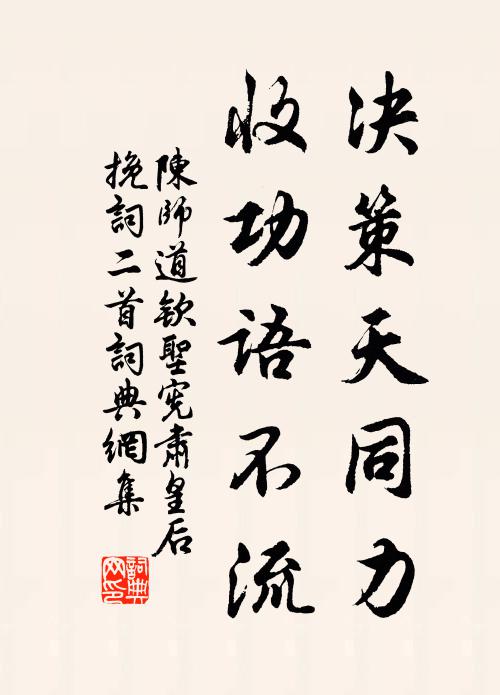 决策天同力
收功语不流
陳師道欽聖宪肅皇后
挽詞二首詞典網集
詞典网印